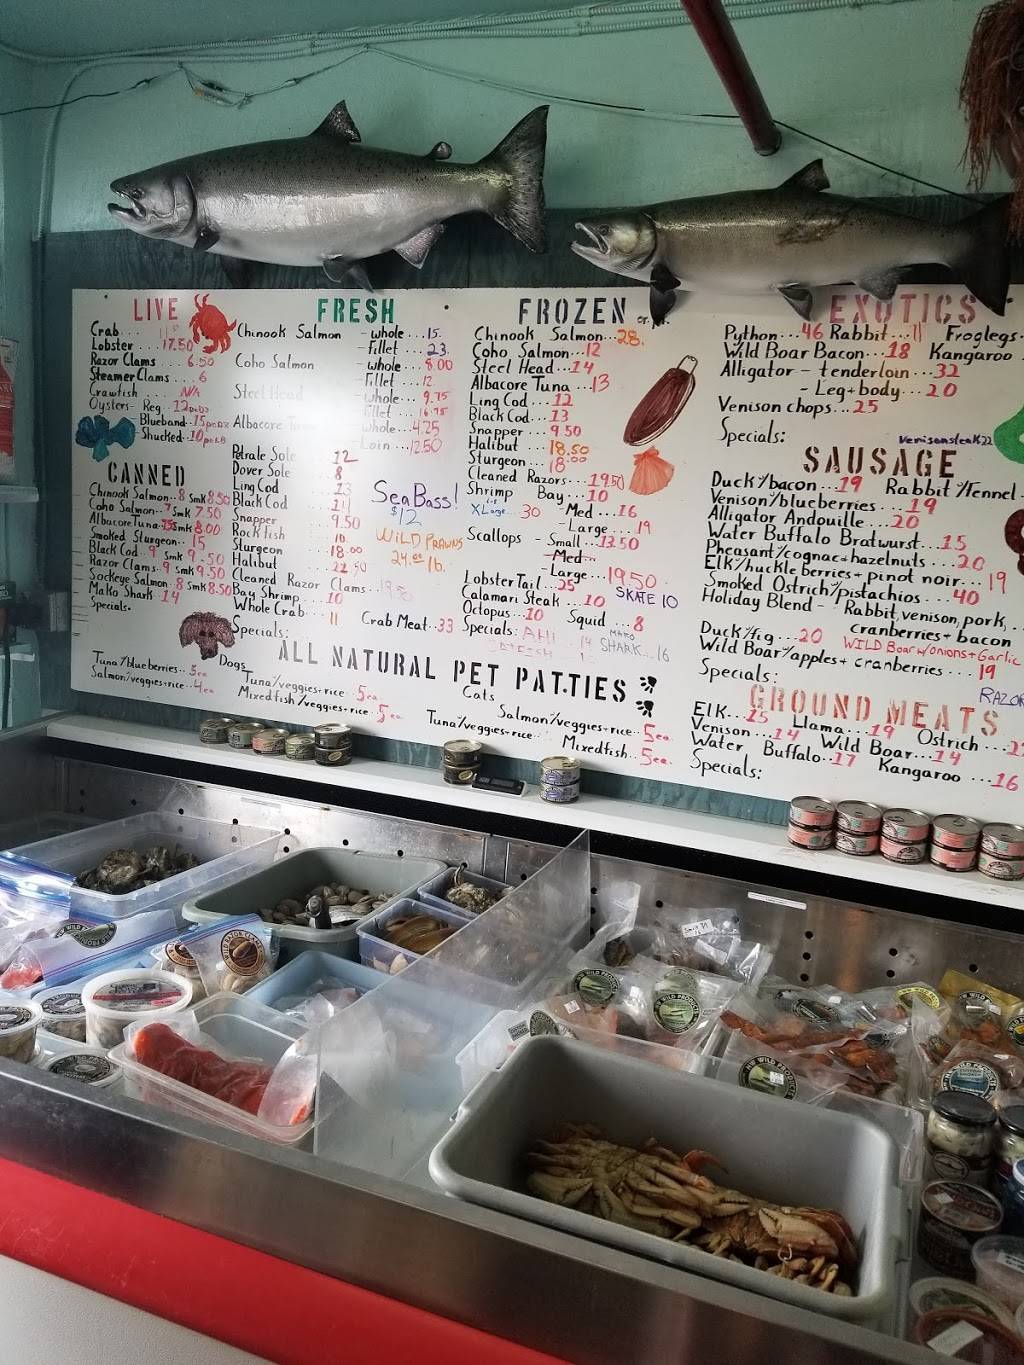 LIVE
Crab... 11
Lobster.... 17.50
Razor Clams .... 6.50
Steamer Clams ... 6
Crawfish .... N/A
Oysters - Reg. 12
- Blueband.. 15
- Shucked. 10
CANNED
Chinook Salmon.. 8 smk 8.50
Coho Salmon.. 7 smk 7.50
Albacore Tuna smk 8.00
Smoked Sturgeon.. 15
Black Cod.. 9 smk 9.50
Razor Clams.. 9 smk 9.50
Sockeye Salmon.. 8 smk 8.50
Mako Shark.. 14
Specials.
FRESH
Chinook Salmon - whole.. 15.
- Fillet .. 23.
Coho Salmon - whole.. 8.00
- Fillet.. 12.
Steel Head - whole.. 9.75
Fillet.. 16.75
Albacore Tuna - whole.. 4.25
- Loin.. 12.50
Petrale Sole 12
Dover Sole 8
Ling Cod 13
Black Cod
Snapper 9.50
Rockfish 10.
Sturgeon 18.00
Halibut 22.50
Cleaned Razor Clams...
Bay Shrimp.. 10
Whole Crab... 11 Crab Meat.. 33
Specials:
Sea Bass!
$12
WiLD PRAWNS
24.00 lb.
FROZEN
Chinook Salmon... 28.
Coho Salmon... 12
Steel Head... 14
Albacore Tuna ... 13
Ling Cod ... 12
Black Cod... 13
Snapper ... 9.50
Halibut 18.50
Sturgeon... 18.00
Cleaned Razors ... 19.50
Shrimp Bay... 10
XLarge.. 30 - Med ... 16
- Large... 19
Scallops - Small... 13.50
- Med...
- Large... 19.50
Lobster Tail... 25 SKATE 10
Calamari Steak ... 10
Octopus.. 10 Squid ... 8
Specials: AHI 14 MAKO SHARK.. 16
EXOTICS
Python... 46 Rabbit... 11 Froglegs
Wild Boar Bacon... 18 Kangaroo
Alligator - tenderloin... 32
- Leg + body... 20
Venison chops... 25
Specials: Venison steak 22
SAUSAGE
Duck w/bacon... 19 Rabbit w/fennel
Venison w/blueberries ... 19
Alligator Andouille ... 20
Water Buffalo Bratwurst... 15
Pheasant w/cognac + hazelnuts ... 20
Elk w/huckleberries + pinot noir... 19
Smoked Ostrich w/pistachios... 40
Holiday Blend - Rabbit, venison, pork,
cranberries + bacon
Duck w/fig... 20 WILD Boar w/onions + Garlic
Wild Boar w/apples + cranberries ... 19
Specials: RAZOR
GROUND MEATS
Elk... 15 Llama... 19 Ostrich
Venison... 14 Wild Boar... 14
Water Buffalo.. 17 Kangaroo ... 16
Specials:
ALL NATURAL PET PATTIES
Dogs
Tuna w/blueberries.. 5ea
Salmon w/veggies + rice.. 4ea
Tuna w/veggies + rice.. 5ea.
Mixed fish w/veggies + rice.. 5ea
Cats
Salmon w/veggies + rice.. 5ea.
Tuna w/veggies + rice..
Mixed fish.. 5ea.
NW WILD PRODUCTS